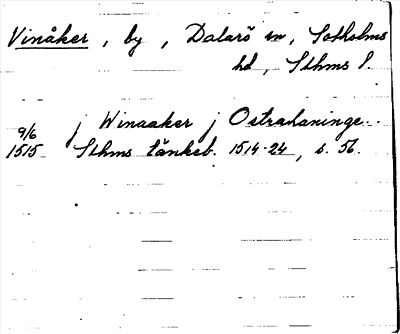 Vinåker, by, Dalarö sn, Sotholms
hd, Sthms l.
9/6 j Winaaker j Ostradaninge..
1515 Sthms tänkeb. 1514-24, s. 56.